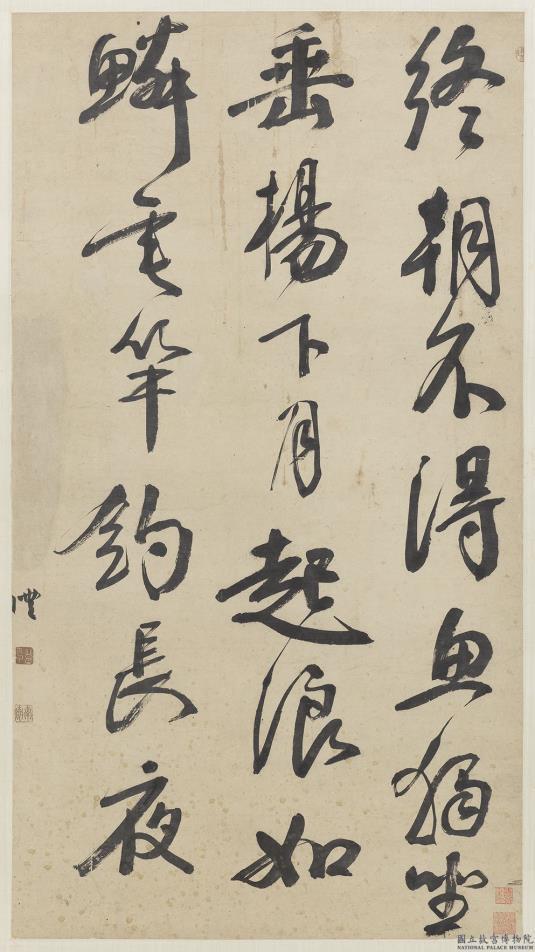 終朝不得魚獨坐
垂楊下月起浪如
鱗竿釣長夜
國立故宮博物院
NATIONAL PALACE MUSEUM